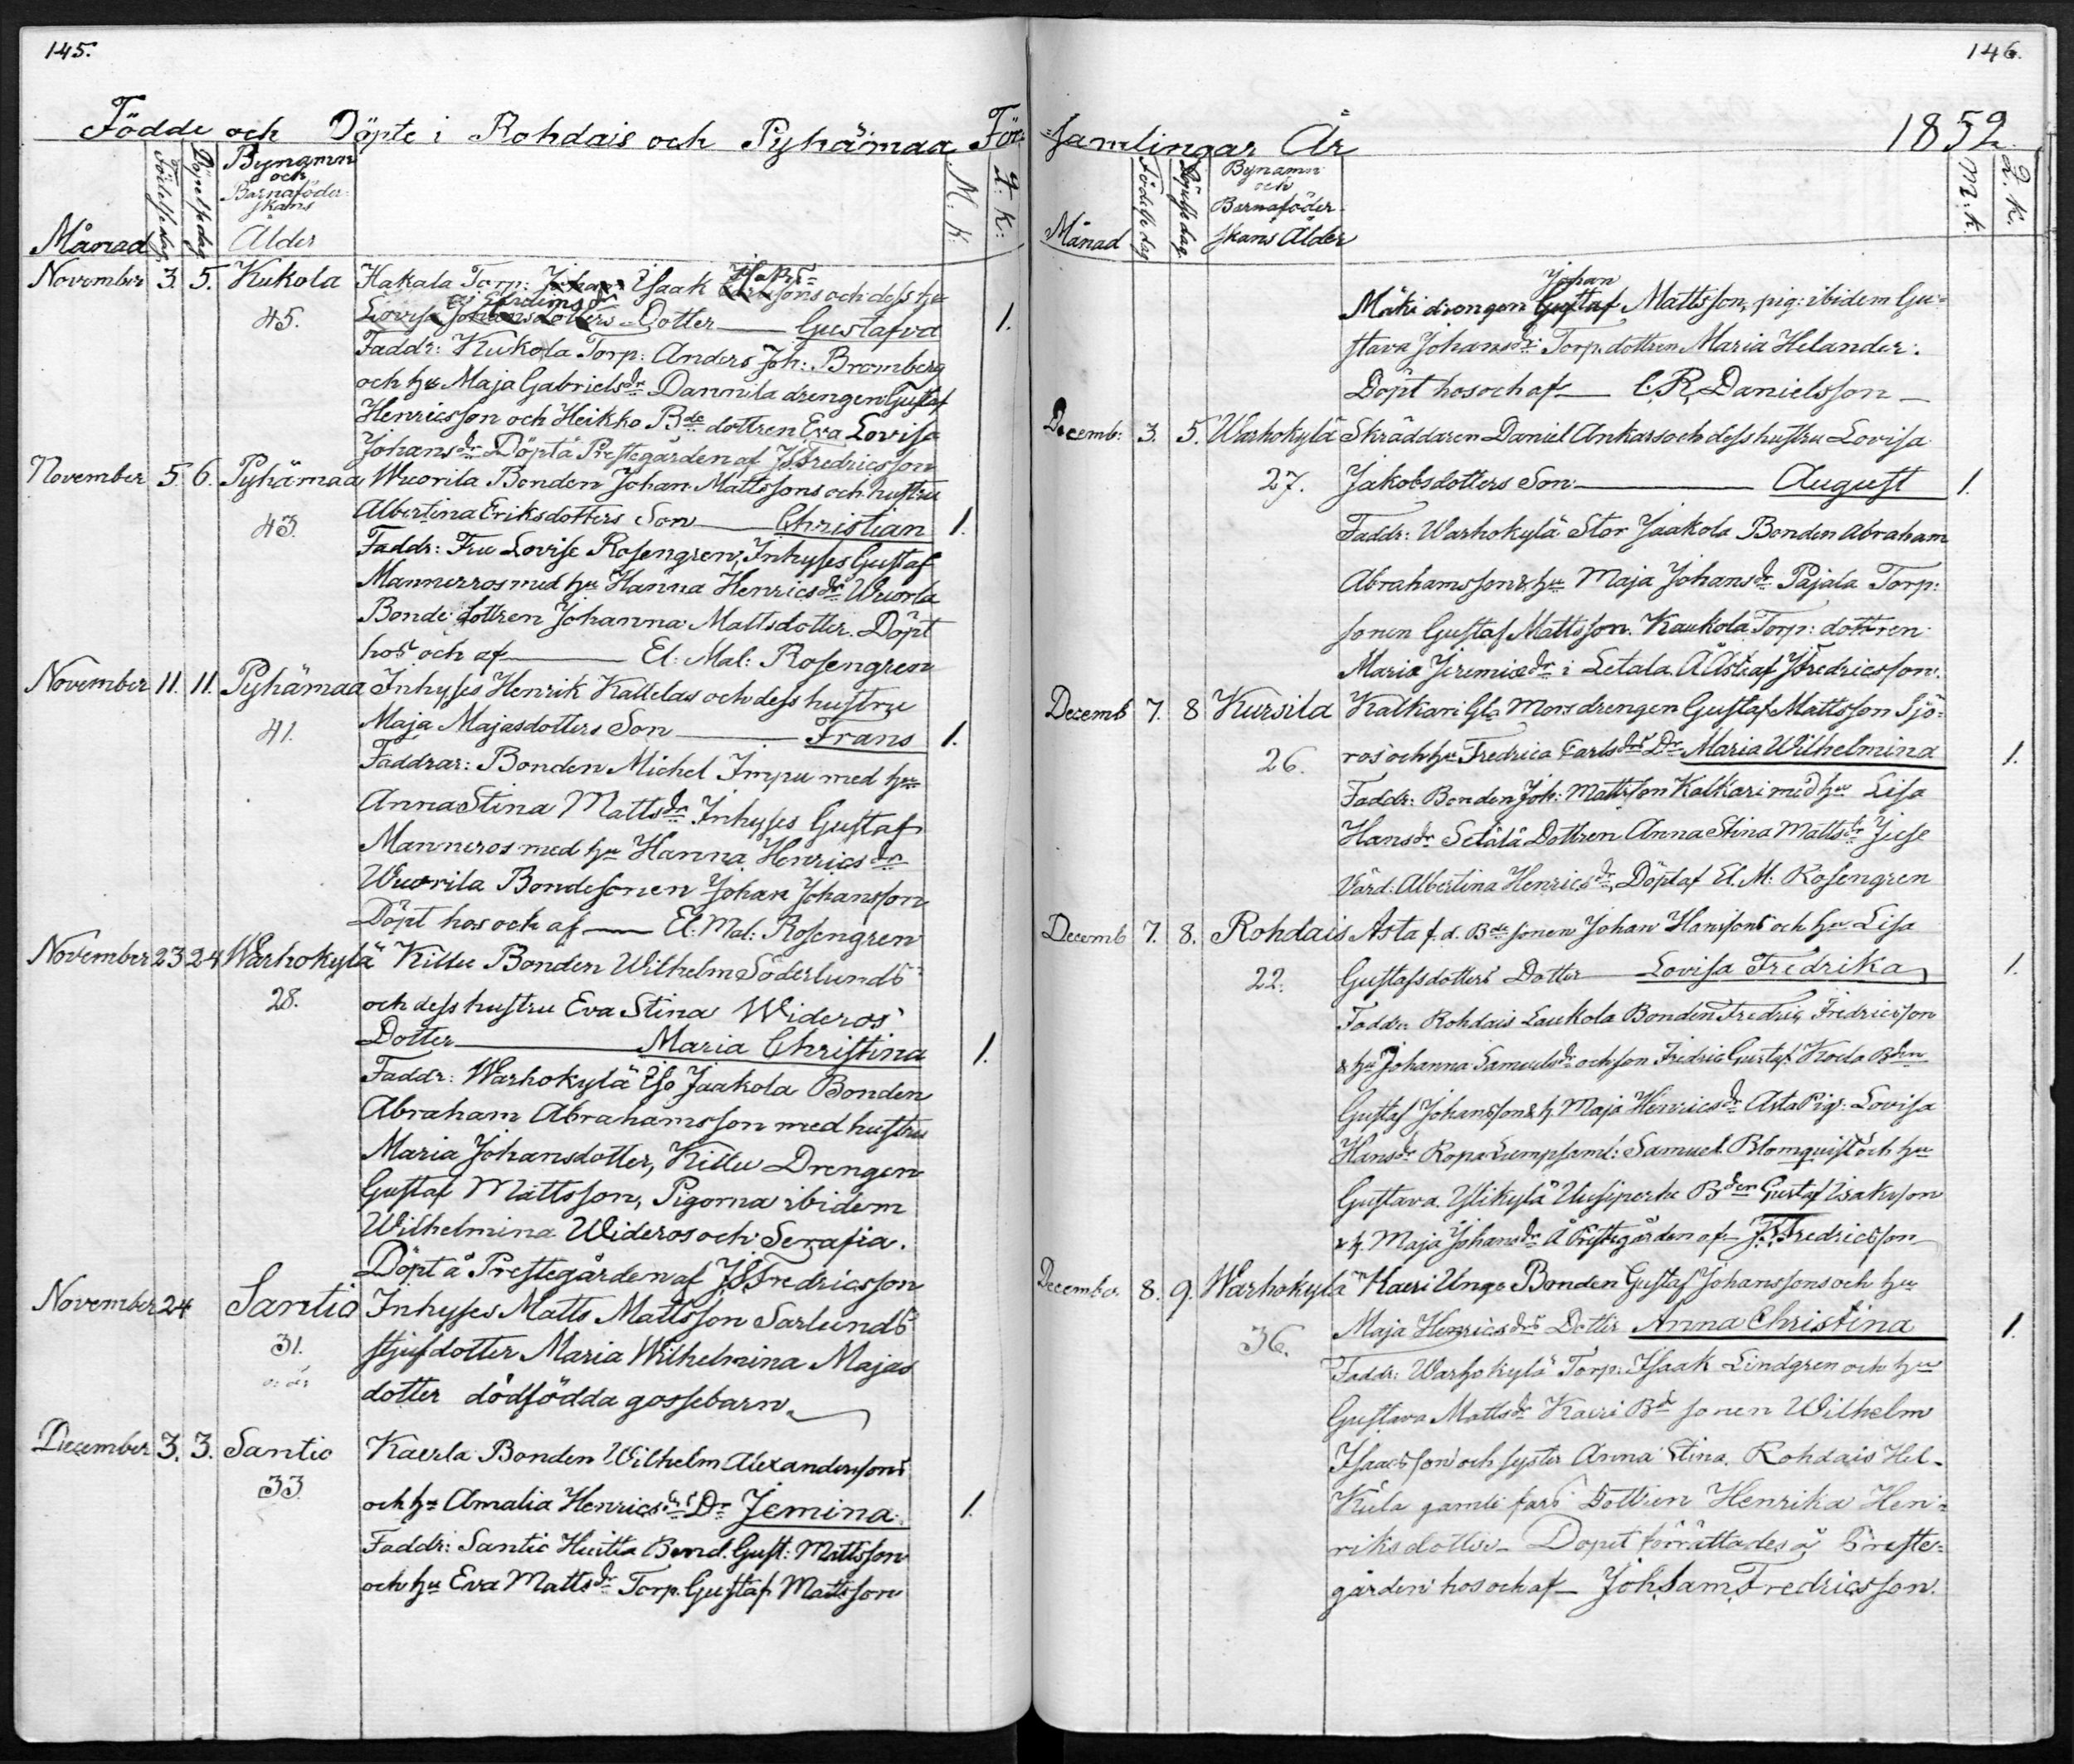 145.
Födde och Döpte i Rohdais och Pyhämaa För-
Månad
Födelsedag
Döpelsedag
Bynamn
och
Barnaföder-
skans
Ålder
M: K:
Q: K:
November 3. 5. Kukola Hakala Torp: Johan Isaak Erikssons och dess hu
45. Lovisa Johansdotters Dotter Gustafva 1.
Faddr: Kukola Torp: Anders Joh: Bromberg
och hu Maja Gabrielsdr Dannila drengen Gustaf
Henricsson och Heikko Bde dottren Eva Lovisa
Johansdr Döpt å Prestegården af J.S. Fredricsson
November 5 6. Pyhämaa Wuorila Bonden Johan Mattssons och hustru
43. Albertina Eriksdotters Son Christian 1.
Faddr: Fru Lovise Rosengren, Inhyses Gustaf
Mannerros med hu Hanna Henricsdr Wuorla
Bonde dottren Johanna Mattsdotter. Döpt
hos och af El: Mal: Rosengren
November 11. 11. Pyhämaa Inhyses Henrik Kattelas och dess hustru
41. Maja Majasdotters Son Frans 1.
Faddrar: Bonden Michel Impu med hu
Anna Stina Mattsdr Inhyses Gustaf
Manneros med hu Hanna Henricsdr
Wuorila Bondesonen Johan Johansson
Döpt hos och af El: Mal: Rosengren
November 23 24 Warhokylä Killu Bonden Wilhelm Söderlunds
28. och dess hustru Eva Stina Wideros
Dotter Maria Christina 1.
Faddr: Warhokylä Iso Jaakola Bonden
Abraham Abrahamsson med hustru
Maria Johansdotter, Killu Drengen
Gustaf Mattsson, Pigorna ibidem
Wilhelmina Wideros och Serafia.
Döpt å Prestegården af J.S. Fredricsson
November 24 Santio Inhyses Matts Mattsson Sarlunds
31. stjufdotter Maria Wilhelmina Majas
dotter dödfödda gossebarn
December 3. 3. Santio Kaerla Bonden Wilhelm Alexanderssons
33. och hu Amalia Henricsdrs Dr Jemina 1.
Faddr: Santio Huitta Bond. Gust: Mattsson
och hu Eva Mattsdr Torp. Gustaf Mattsson
146.
samlingar År 1852.
Månad
Födelsedag
Döpelsedag
Bynamn
och
Barnaföder-
skans Ålder
M: K.
Q: K.
Johan
Mäki drengen Gustaf Mattsson, pig: ibidem Gu-
stava Johansdr Torp. dottren Maria Helander.
Döpt hos och af C.R. Danielsson
Decemb: 3. 5. Warhokylä Skräddaren Daniel Ankars och dess hustru Lovisa
27. Jakobsdotters Son August 1.
Faddr: Warhokylä Stor Jaakola Bonden Abraham
Abrahamsson & hu Maja Johansdr Pajala Torp:
sonen Gustaf Mattsson. Kaukola Torp: dottren
Maria Jeremiædr i Letala. af J.S. Fredricsson.
Decemb 7. 8 Kursila Kalkari Gla Mors drengen Gustaf Mattsson Sjö-
26. ros och hu Fredrica Carlsdrs Dr Maria Wilhelmina 1.
Faddr: Bonden Joh: Mattsson Kalkari med hu Lisa
Hansdr Setälä Dottren Anna Stina Mattsdr
Värd: Albertina Henricsdr, Döpt af El. M: Rosengren
Decemb 7. 8. Rohdais Asta f.d. Bde sonen Johan Hanssons och hu Lisa
22. Gustafsdotters Dotter Lovisa Fredrika 1.
Faddr: Rohdais Laukola Bonden Fredric Fredricsson
& hu Johanna Samuelsdr och son Fredric Gustaf. Koela Bden
Gustaf Johansson & h. Maja Henricsdr Asta Pig: Lovisa
Hansdr Ropa Lumpsaml: Samuel Blomquist och hu
Gustava. Ylikylä Uusiperhe Bden Gustaf Isaksson
& h. Maja Johansdr Å Prestegården af J.S. Fredricsson
December 8. 9. Warhokylä Kaeri Unge Bonden Gustaf Johanssons och hu
36. Maja Henricsdrs Dotter Anna Christina 1.
Faddr: Warhokylä Torp: Isaak Lindgren och hu
Gustava Mattsdr Kaeri Bde sonen Wilhelm
Isaacsson och syster Anna Stina. Rohdais Hel-
Kula gamle fars Dottren Henrika Hen-
riksdotter. Dopet förrättades å Preste-
gården hos och af Joh. Sam. Fredricsson.